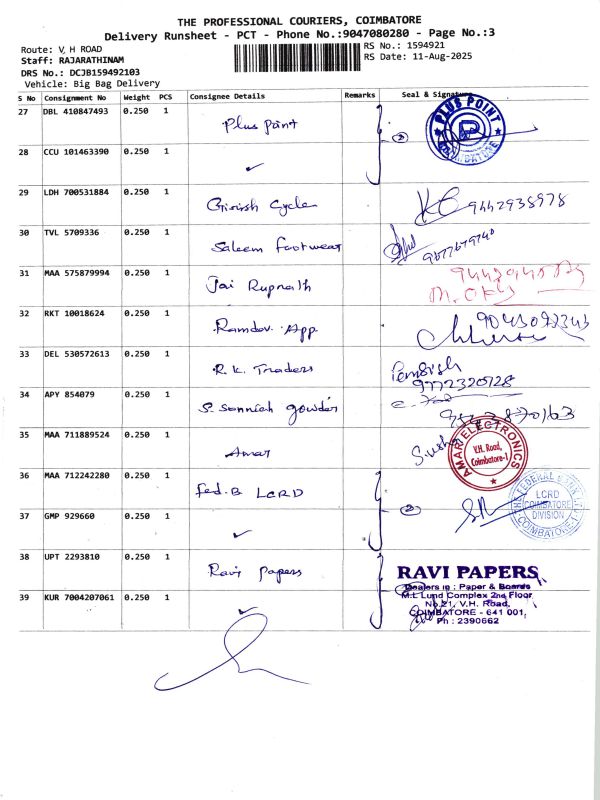 THE PROFESSIONAL COURIERS, COIMBATORE
Delivery Runsheet - PCT - Phone No.:9047080280 - Page No.:3
Route: V, H ROAD
RS No.: 1594921
Staff: RAJARATHINAM
RS Date: 11-Aug-2025
DRS No.: DCJB159492103
Vehicle: Big Bag Delivery
S No Consignment No Weight PCS Consignee Details Remarks Seal & Signature
27 DBL 410847493 0.250 1 Plus Point
PLUS POINT COIMBATORE
28 CCU 101463390 0.250 1 ✓
29 LDH 700531884 0.250 1 Girish Cycle 9442938978
30 TVL 5709336 0.250 1 Saleem footwear
31 MAA 575879994 0.250 1 Jai Rupnath
32 RKT 10018624 0.250 1 Ramdev App.
33 DEL 530572613 0.250 1 R.K. Traders
34 APY 854079 0.250 1 gowder
35 MAA 711889524 0.250 1 Amar
AMAR ELECTRONICS
V.H. Road,
Coimbatore-1
36 MAA 712242280 0.250 1 Fed.B LCRD
LCRD
COIMBATORE
DIVISION
COIMBATORE-1
37 GMP 929660 0.250 1 ✓
38 UPT 2293810 0.250 1 Ravi Papers
RAVI PAPERS
Dealers in : Paper & Boards
M.L Lund Complex 2nd Floor
No.21, V.H. Road,
COIMBATORE - 641 001,
Ph : 2390662
39 KUR 7004207061 0.250 1 ✓